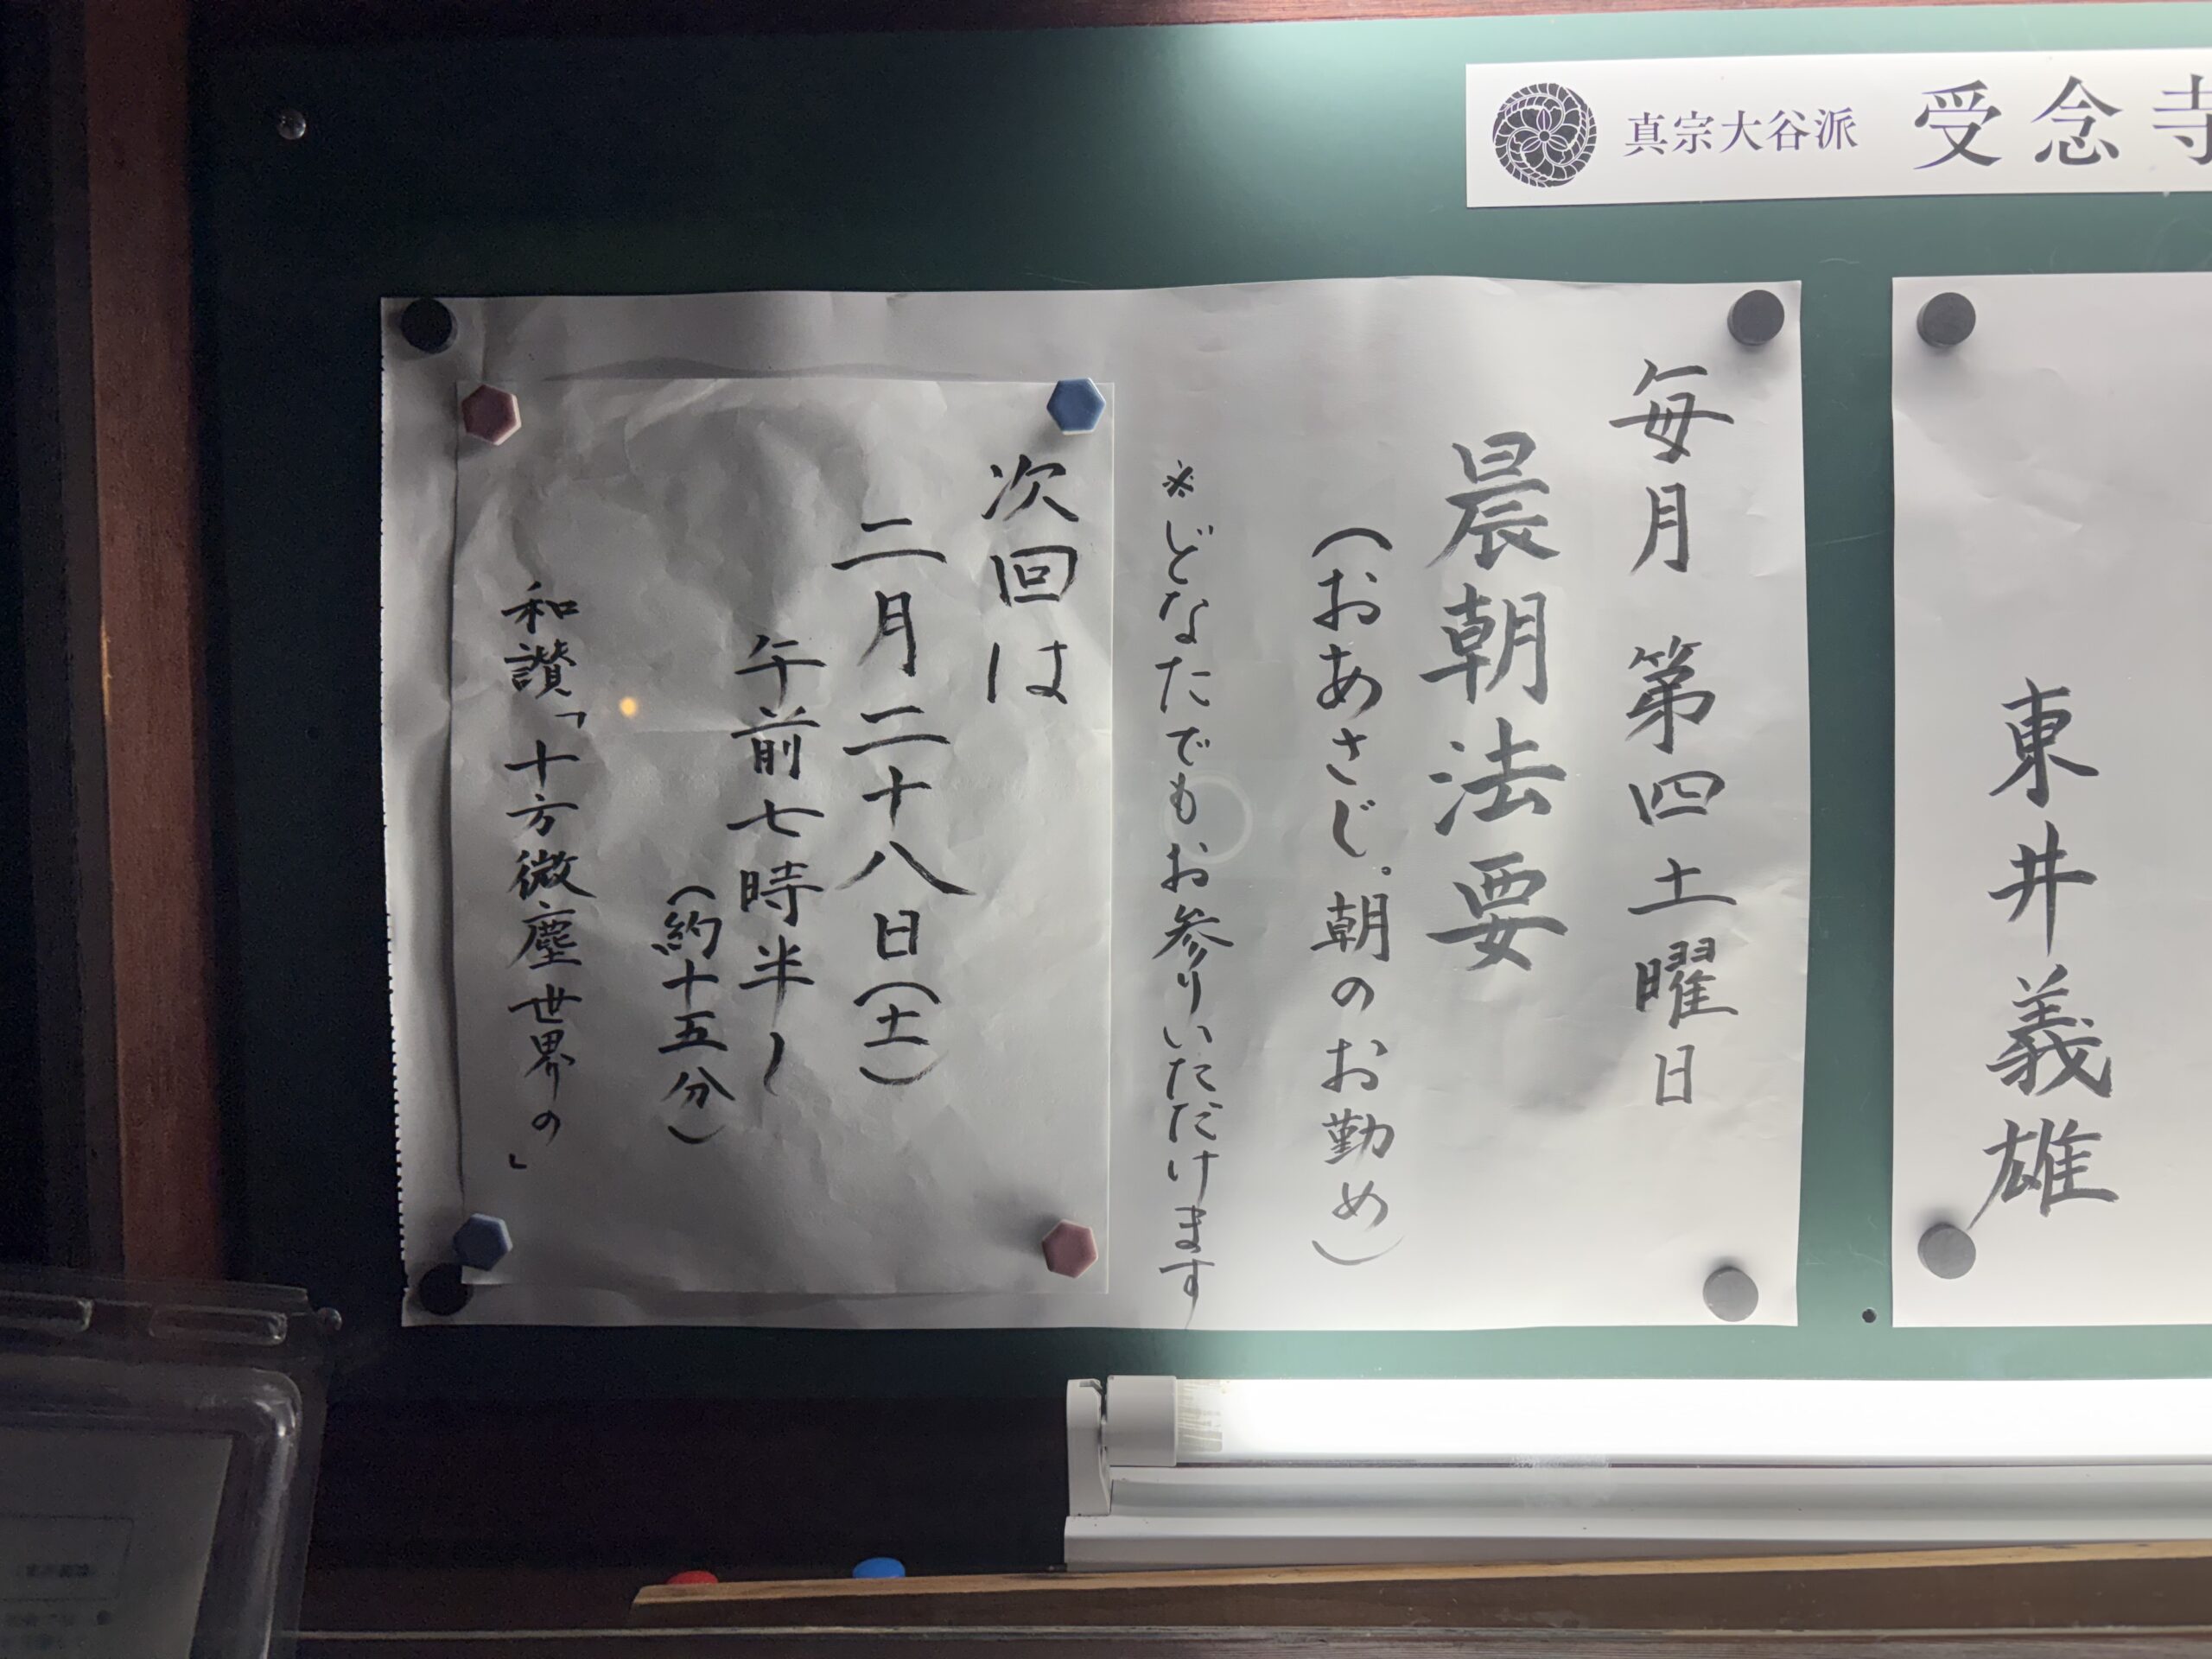 真宗大谷派 受念寺
東井義雄
毎月 第四土曜日
晨朝法要
(おあさじ。朝のお勤め)
※どなたでもお参りいただけます
次回は
二月二十八日(土)
午前七時半〜
(約十五分)
和讃「十方微塵世界の」